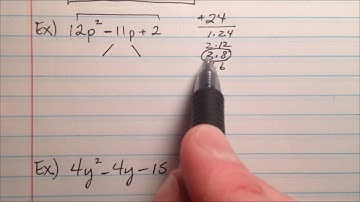 Ex) 12p² - 11p + 2
+24
1·24
2·12
3+8
6
Ex) 4y² - 4y - 15